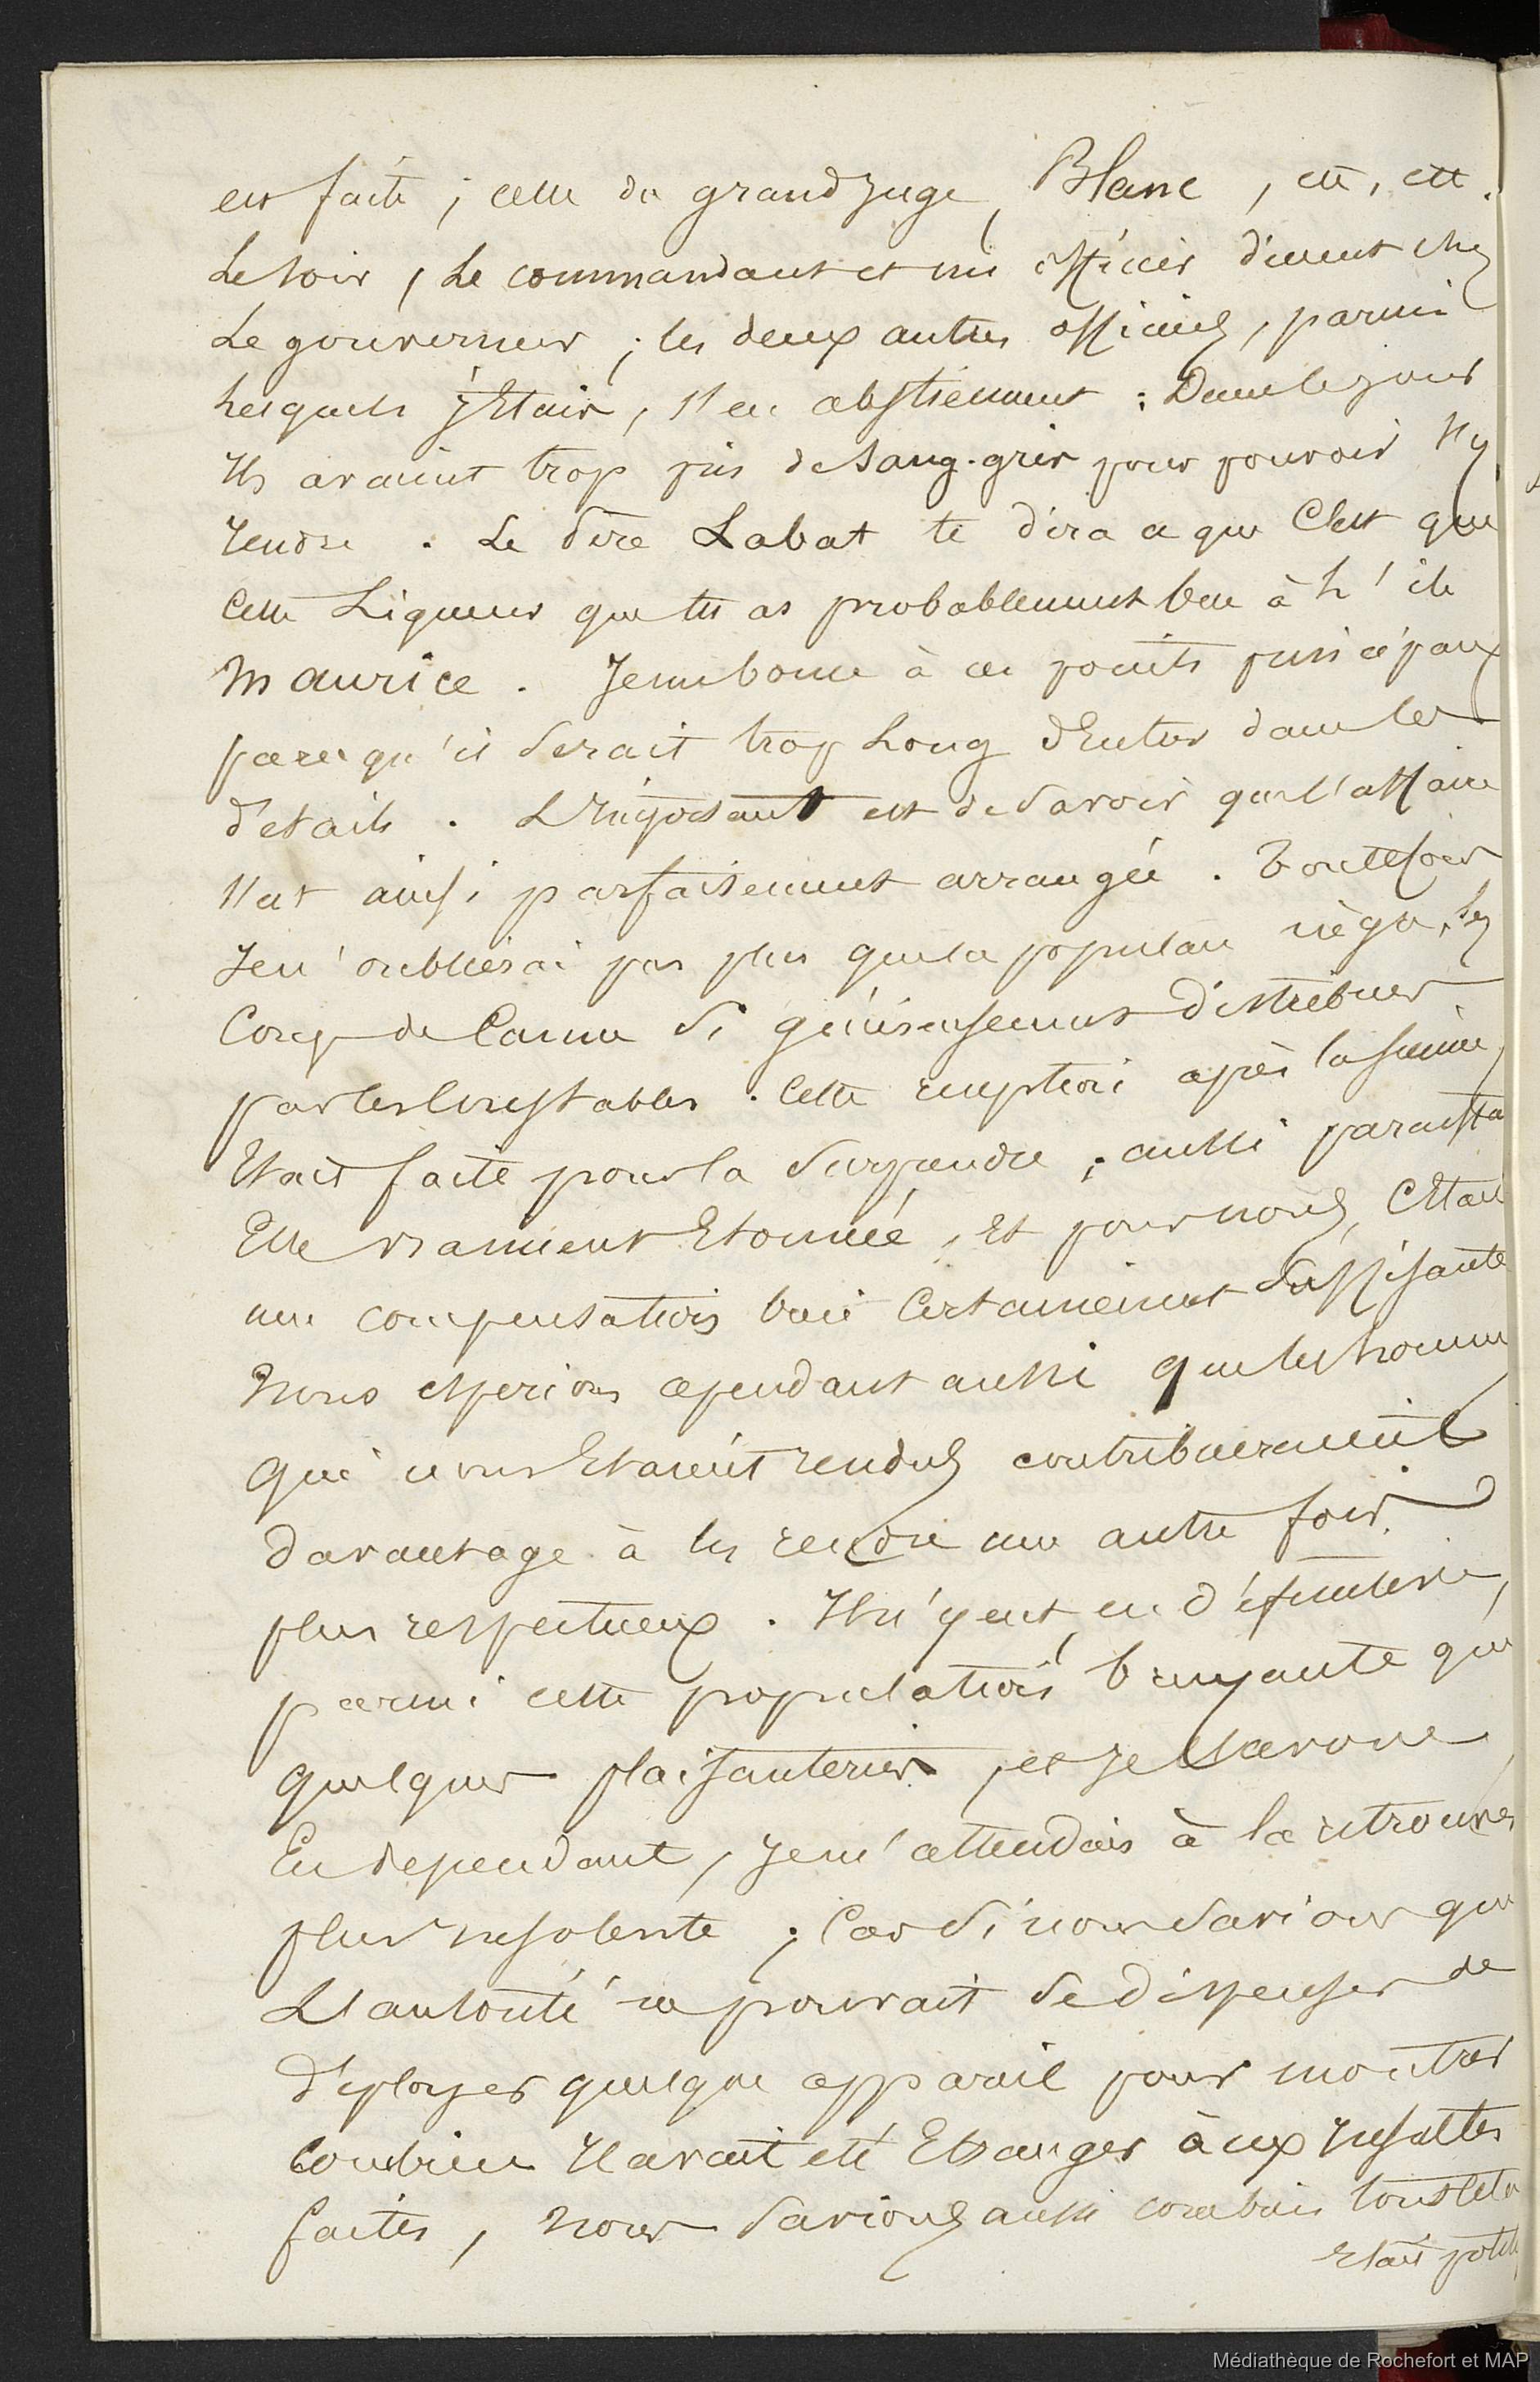 est faite ; celle du grand Juge, Blanc, ett, ett.
Le soir, Le commandant et un officier dinent chez
Le gouverneur ; les deux autres officiers, parmi
Lesquels j'Etais, s'en abstiennent : Dans le jour
Ils avaient trop pris de sang-gris pour pouvoir s'y
rendre. Le Père Labat te dira ce que C'est que
Cette Liqueur que tu as probablement bue à L'ile
Maurice. Je me borne à ces points principaux
parce qu'il serait trop Long d'Entrer dans les
details. L'Important est de Savoir que l'affaire
s'est ainsi parfaitement arrangée. Toutefois
Je n'oublierai pas plus que la population nègre, les
Coups de Canne si généreusement distribués
par les Constables. Cette reception après la sienne,
Etait faite pour la Surprendre ; aussi parut
Elle vraiment Etonnée, Et pour nous, C'Etait
une compensation bien Certainement Suffisante
Nous esperions cependant aussi que les honneurs
qui nous Etaient rendus contribueraient
davantage à les rendre une autre fois
plus respectueux. Il n'y eut, en définitive,
parmi cette population bruyante que
quelques plaisanteries, et je l'avoue
Cependant, Je m'attendais à la retrouver
plus insolente ; Car Si nous Savions que
L'autorité ne pouvait Se dispenser de
déployer quelque appareil pour montrer
Combien Il avait été Etranger à ces Insultes
faites, Nous Savions aussi combien tout cela
Etait